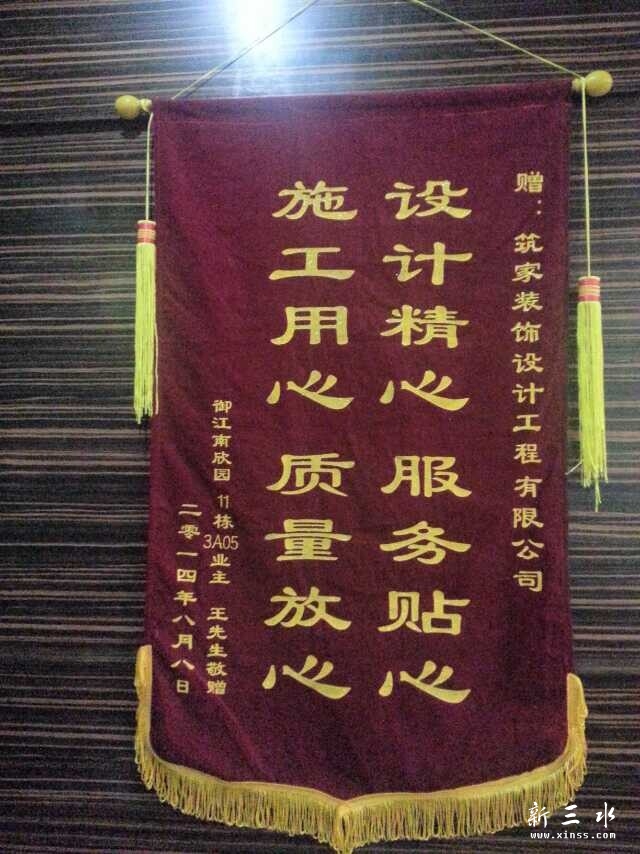 赠：筑家装饰设计工程有限公司
设计精心 服务贴心
施工用心 质量放心
御江南欣园 11栋3A05业主 王先生敬赠
二零一四年八月八日
新三水
www.xinss.com